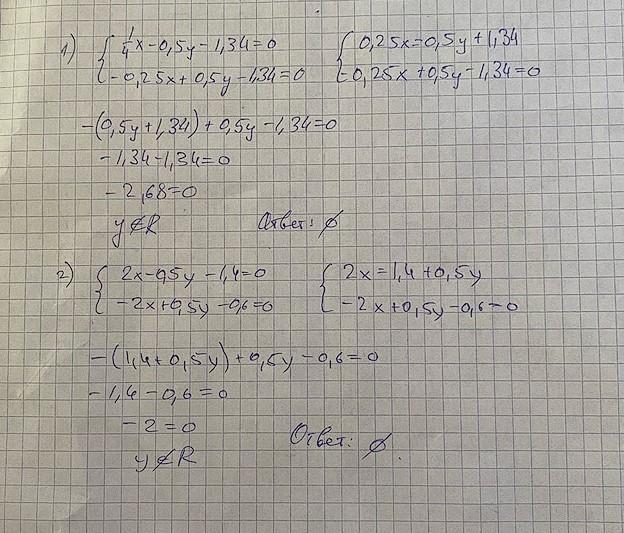 1) { 1/4x - 0,5y - 1,34 = 0 { 0,25x = 0,5y + 1,34
{ -0,25x + 0,5y - 1,34 = 0 { -0,25x + 0,5y - 1,34 = 0
-(0,5y + 1,34) + 0,5y - 1,34 = 0
-1,34 - 1,34 = 0
-2,68 = 0
y ∉ R Ответ: ∅
2) { 2x - 0,5y - 1,4 = 0 { 2x = 1,4 + 0,5y
{ -2x + 0,5y - 0,6 = 0 { -2x + 0,5y - 0,6 = 0
-(1,4 + 0,5y) + 0,5y - 0,6 = 0
-1,4 - 0,6 = 0
-2 = 0
y ∉ R Ответ: ∅.